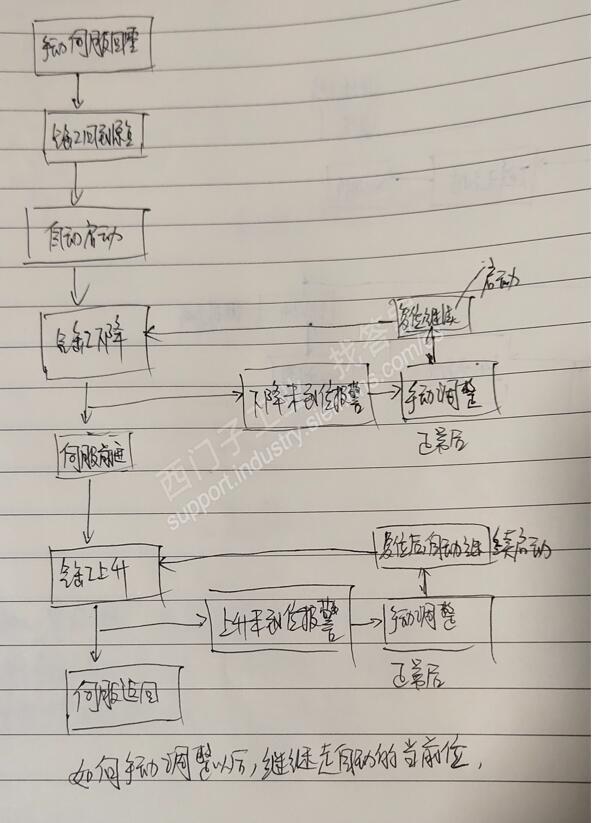 手动伺服回零
气缸2回到原点
自动启动
气缸2下降
复位继续
启动
下降未到位报警
手动调整
正常后
伺服前进
气缸2上升
复位后自动继续启动
上升未到位报警
手动调整
正常后
伺服返回
如何手动调整以后，继续走自动的当前位，
西门子
找答案
support.industry.siemens.com/cs